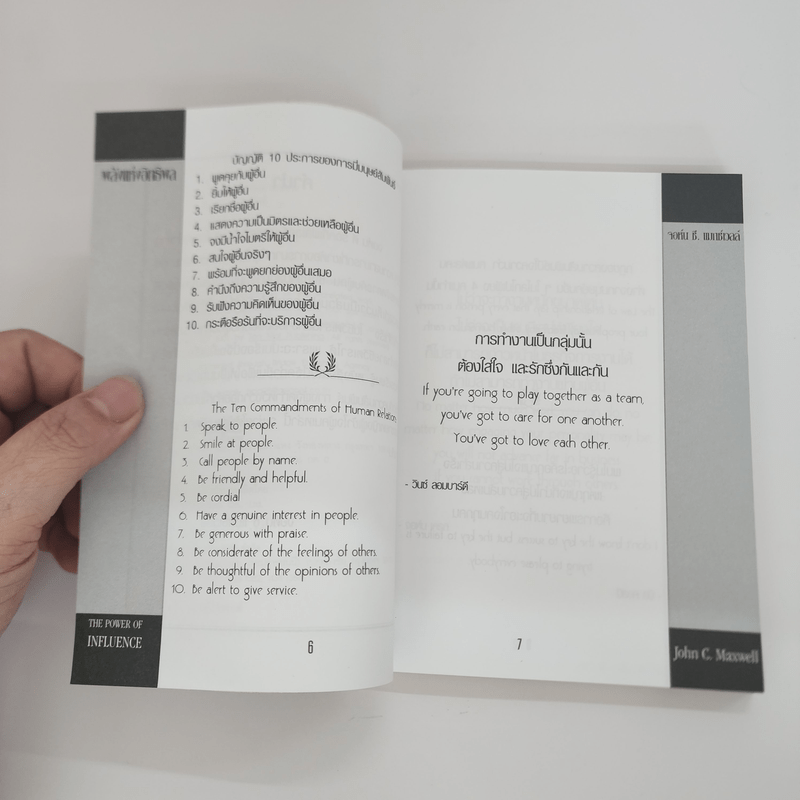 พลังแห่งอิทธิพล
บัญญัติ 10 ประการของการมีมนุษย์สัมพันธ์
1. พูดคุยกับผู้อื่น
2. ยิ้มให้ผู้อื่น
3. เรียกชื่อผู้อื่น
4. แสดงความเป็นมิตรและช่วยเหลือผู้อื่น
5. จงมีน้ำใจไมตรีให้ผู้อื่น
6. สนใจผู้อื่นจริงๆ
7. พร้อมที่จะพูดยกย่องผู้อื่นเสมอ
8. คำนึงถึงความรู้สึกของผู้อื่น
9. รับฟังความคิดเห็นของผู้อื่น
10. กระตือรือร้นที่จะบริการผู้อื่น
The Ten Commandments of Human Relation
1. Speak to people.
2. Smile at people.
3. Call people by name.
4. Be friendly and helpful.
5. Be cordial
6. Have a genuine interest in people.
7. Be generous with praise.
8. Be considerate of the feelings of others.
9. Be thoughtful of the opinions of others.
10. Be alert to give service.
THE POWER OF
INFLUENCE
6
จอห์น ซี. แมกซ์เวลล์
การทำงานเป็นกลุ่มนั้น
ต้องใส่ใจ และรักซึ่งกันและกัน
If you're going to play together as a team,
you've got to care for one another.
You've got to love each other.
- วินซ์ ลอมบาร์ดี
7
John C. Maxwell